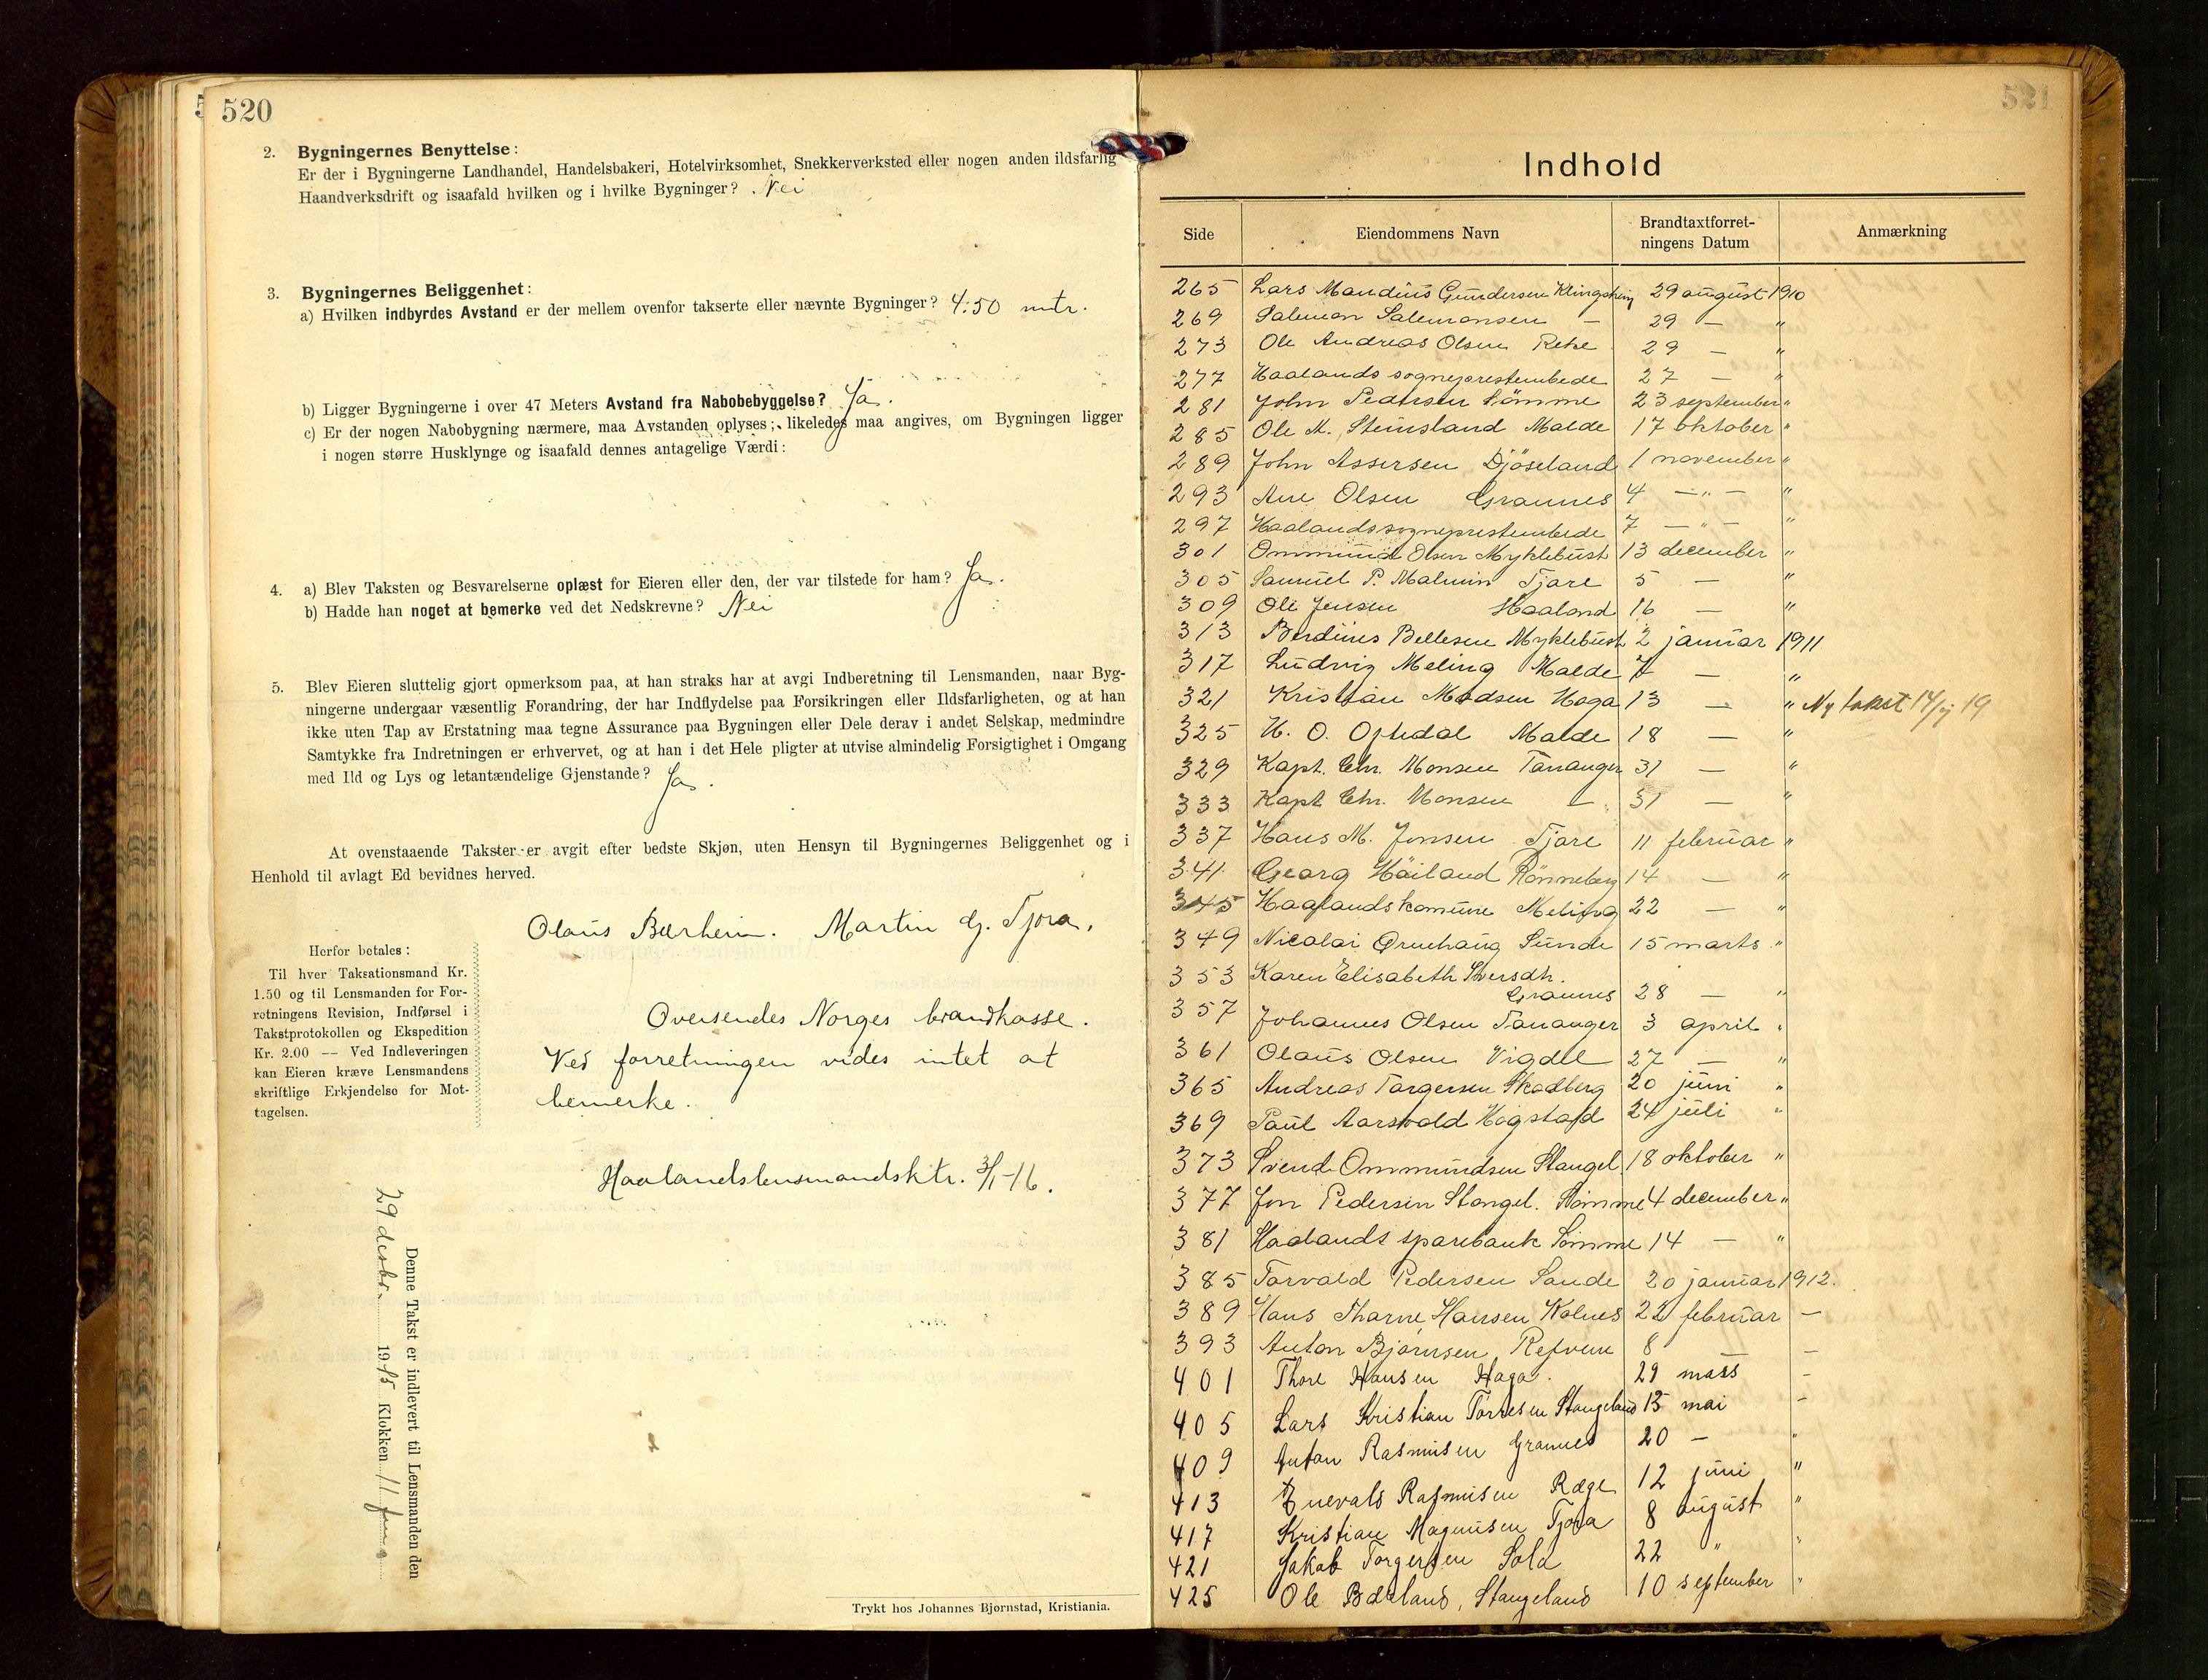 520
2. Bygningernes Benyttelse:
Er der i Bygningerne Landhandel, Handelsbakeri, Hotelvirksomhet, Snekkerverksted eller nogen anden ildsfarlig
Haandverksdrift og isaafald hvilken og i hvilke Bygninger? Nei
3. Bygningernes Beliggenhet:
a) Hvilken indbyrdes Avstand er der mellem ovenfor takserte eller nævnte Bygninger? 4:50 mtr.
b) Ligger Bygningerne i over 47 Meters Avstand fra Nabobebyggelse? Ja.
c) Er der nogen Nabobygning nærmere, maa Avstanden oplyses; likeledes maa angives, om Bygningen ligger
i nogen større Husklynge og isaafald dennes antagelige Værdi:
4. a) Blev Taksten og Besvarelserne oplæst for Eieren eller den, der var tilstede for ham? Ja.
b) Hadde han noget at bemerke ved det Nedskrevne? Nei
5. Blev Eieren sluttelig gjort opmerksom paa, at han straks har at avgi Indberetning til Lensmanden, naar Byg-
ningerne undergaar væsentlig Forandring, der har Indflydelse paa Forsikringen eller Ildsfarligheten, og at han
ikke uten Tap av Erstatning maa tegne Assurance paa Bygningen eller Dele derav i andet Selskap, medmindre
Samtykke fra Indretningen er erhvervet, og at han i det Hele pligter at utvise almindelig Forsigtighet i Omgang
med Ild og Lys og letantændelige Gjenstande? Ja.
At ovenstaaende Takster er avgit efter bedste Skjøn, uten Hensyn til Bygningernes Beliggenhet og i
Henhold til avlagt Ed bevidnes herved.
Olaus Bærheim. Martin G. Tjora.
Herfor betales:
Til hver Taksationsmand Kr.
1.50 og til Lensmanden for For-
retningens Revision, Indførsel i
Takstprotokollen og Ekspedition
Kr. 2.00 -- Ved Indleveringen
kan Eieren kræve Lensmandens
skriftlige Erkjendelse for Mot-
tagelsen.
Oversendes Norges brandkasse.
Ved forretningen vides intet at
bemerke.
Haalandslensmandsktr. 3/1-16.
Denne Takst er indlevert til Lensmanden den
29 desbr. 1915 Klokken 11 fm.
Trykt hos Johannes Bjørnstad, Kristiania.
521
Indhold
Side Eiendommens Navn Brandtaxtforret-
ningens Datum Anmærkning
265 Lars Mandius Gundersen 29 august 1910
269 Salemon Salemonsen — 29 — "
273 Ole Andreas Olsen Reke 29 — "
277 Haalands sogneprestembede 27 — "
281 John Pedersen Sömme 23 september "
285 Ole M. Steinsland Malde 17 oktober "
289 John Assersen Djöseland 1 november "
293 Ane Olsen Grannes 4 — " — "
297 Haalands sogneprestembede 7 — " — "
301 Ommund Olsen Myklebust 13 december "
305 Samuel P. Malmin Tjore 5 — "
309 Ole Jensen Haaland 16 — "
313 Berdines Bellesen Myklebust 2 januar 1911
317 Ludvig Meling Malde 7 — "
321 Kristian Madsen Haga 13 — " Ny takst 14/7 19
325 H. O. Opedal Malde 18 — "
329 Kapt. Chr. Monsen Tananger 31 — "
333 Kapt Chr. Monsen — 31 — "
337 Hans M. Jonsen Tjore 11 februar "
341 Georg Håiland Rönneberg 14 — "
345 Haalands komune Meling 22 — "
349 Nicolai Grudehaug Sunde 15 marts "
353 Karen Elisabeth Sversdh.
Grannes 28 — "
357 Johannes Olsen Tananger 3 april "
361 Olaus Olsen Vigdel 27 — "
365 Andreas Torgersen Skadberg 20 juni "
369 Paul Aarsvold Hogstad 24 juli "
373 Svend Ommundsen Stangel. 18 oktober "
377 Jon Pedersen Stangel. Sömme 4 december "
381 Haalands sparebank Sömme 14 — "
385 Torvald Pedersen Sande 20 januar 1912.
389 Hans Tharne Hansen Kolnes 22 februar —
393 Anton Bjørnsen, Refvem 8 —
401 Thore Hansen Haga. 29 mars -
405 Lars Kristian Torresen Stangeland 13 mai -
409 Anton Rasmusen Grannes 20 — "
413 Enevald Rasmusen Ræge 12 juni "
417 Kristian Magnusen Tjora 8 august "
421 Jakob Torgersen Sola 22 " "
425 Ole Bærland, Stangeland 10 september "